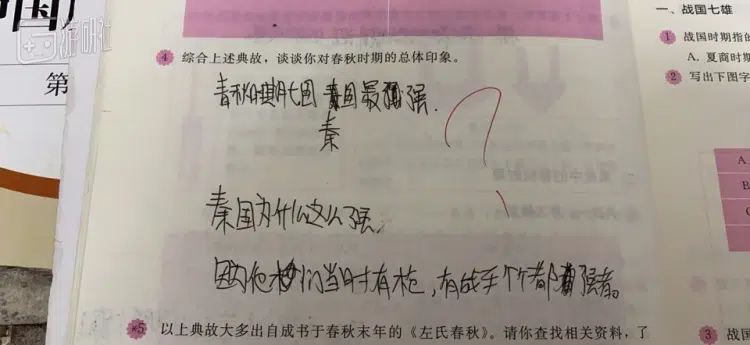 国
游研社
第
4 综合上述典故，谈谈你对春秋时期的总体印象。
春秋时期七国 秦国最强.
秦
秦国为什么这么强，
因为他们当时有枪，有的手个个都强者。
*5 以上典故大多出自成书于春秋末年的《左氏春秋》。请你查找相关资料，了
一、战国七雄
1 战国时期指的
A. 夏商时期
2 写出下图字
A
B
C
3 战国